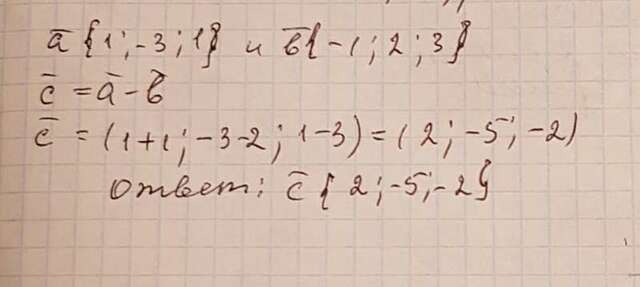 ā {1; -3; 1} и b̄ {-1; 2; 3}
c̄ = ā - b̄
c̄ = (1+1; -3-2; 1-3) = (2; -5; -2)
Ответ: c̄ {2; -5; -2}